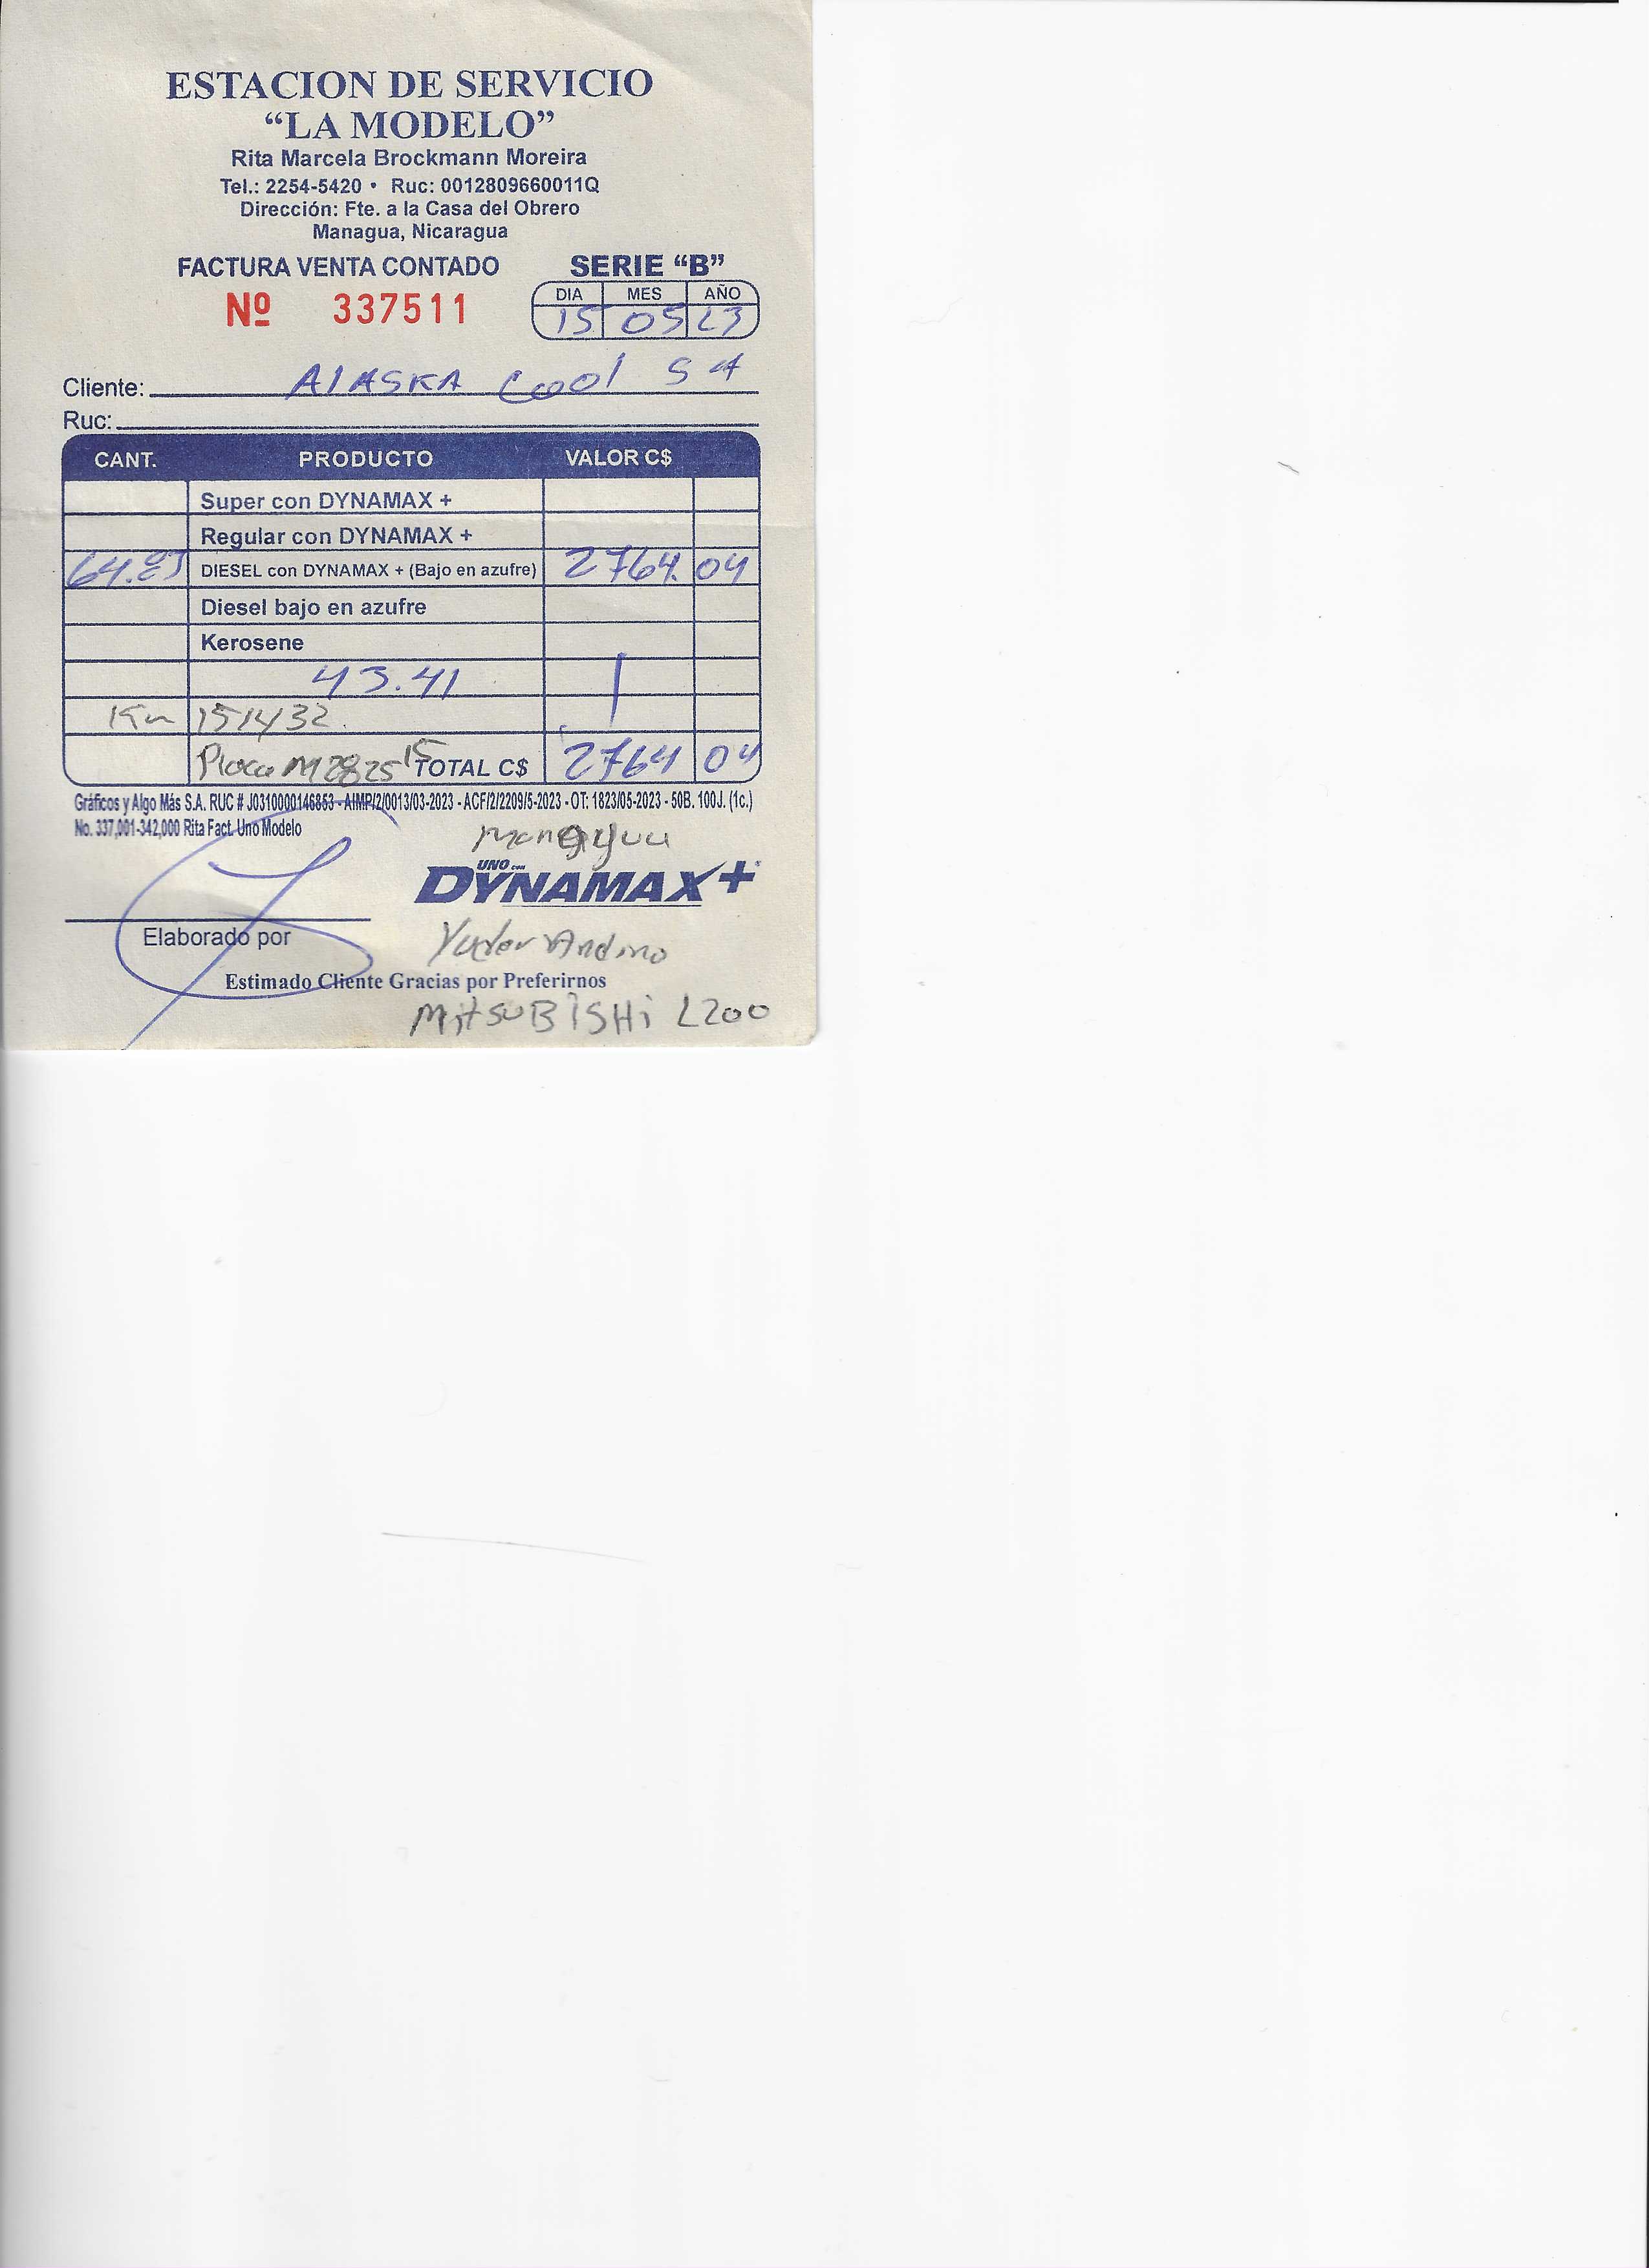 ESTACION DE SERVICIO
“LA MODELO”
Rita Marcela Brockmann Moreira
Tel.: 2254-5420 • Ruc: 0012809660011Q
Dirección: Fte. a la Casa del Obrero
Managua, Nicaragua
FACTURA VENTA CONTADO SERIE “B”
Nº 337511
DIA MES AÑO
15 05 23
Cliente: AlASKA Cool SA
Ruc:
CANT. PRODUCTO VALOR C$
Super con DYNAMAX +
Regular con DYNAMAX +
DIESEL con DYNAMAX + (Bajo en azufre) 2764. 04
Diesel bajo en azufre
Kerosene
43.41
Km 151432.
Placa TOTAL C$ 2764 04
Gráficos y Algo Más S.A. RUC # J0310000146853 - AIMP/2/0013/03-2023 - ACF/2/2209/5-2023 - OT: 1823/05-2023 - 50B. 100J. (1c.)
No. 337,001-342,000 Rita Fact. Uno Modelo
managua
UNO con
DYNAMAX+
Elaborado por
Yader Andino
Estimado Cliente Gracias por Preferirnos
MitsuBiSHi L200